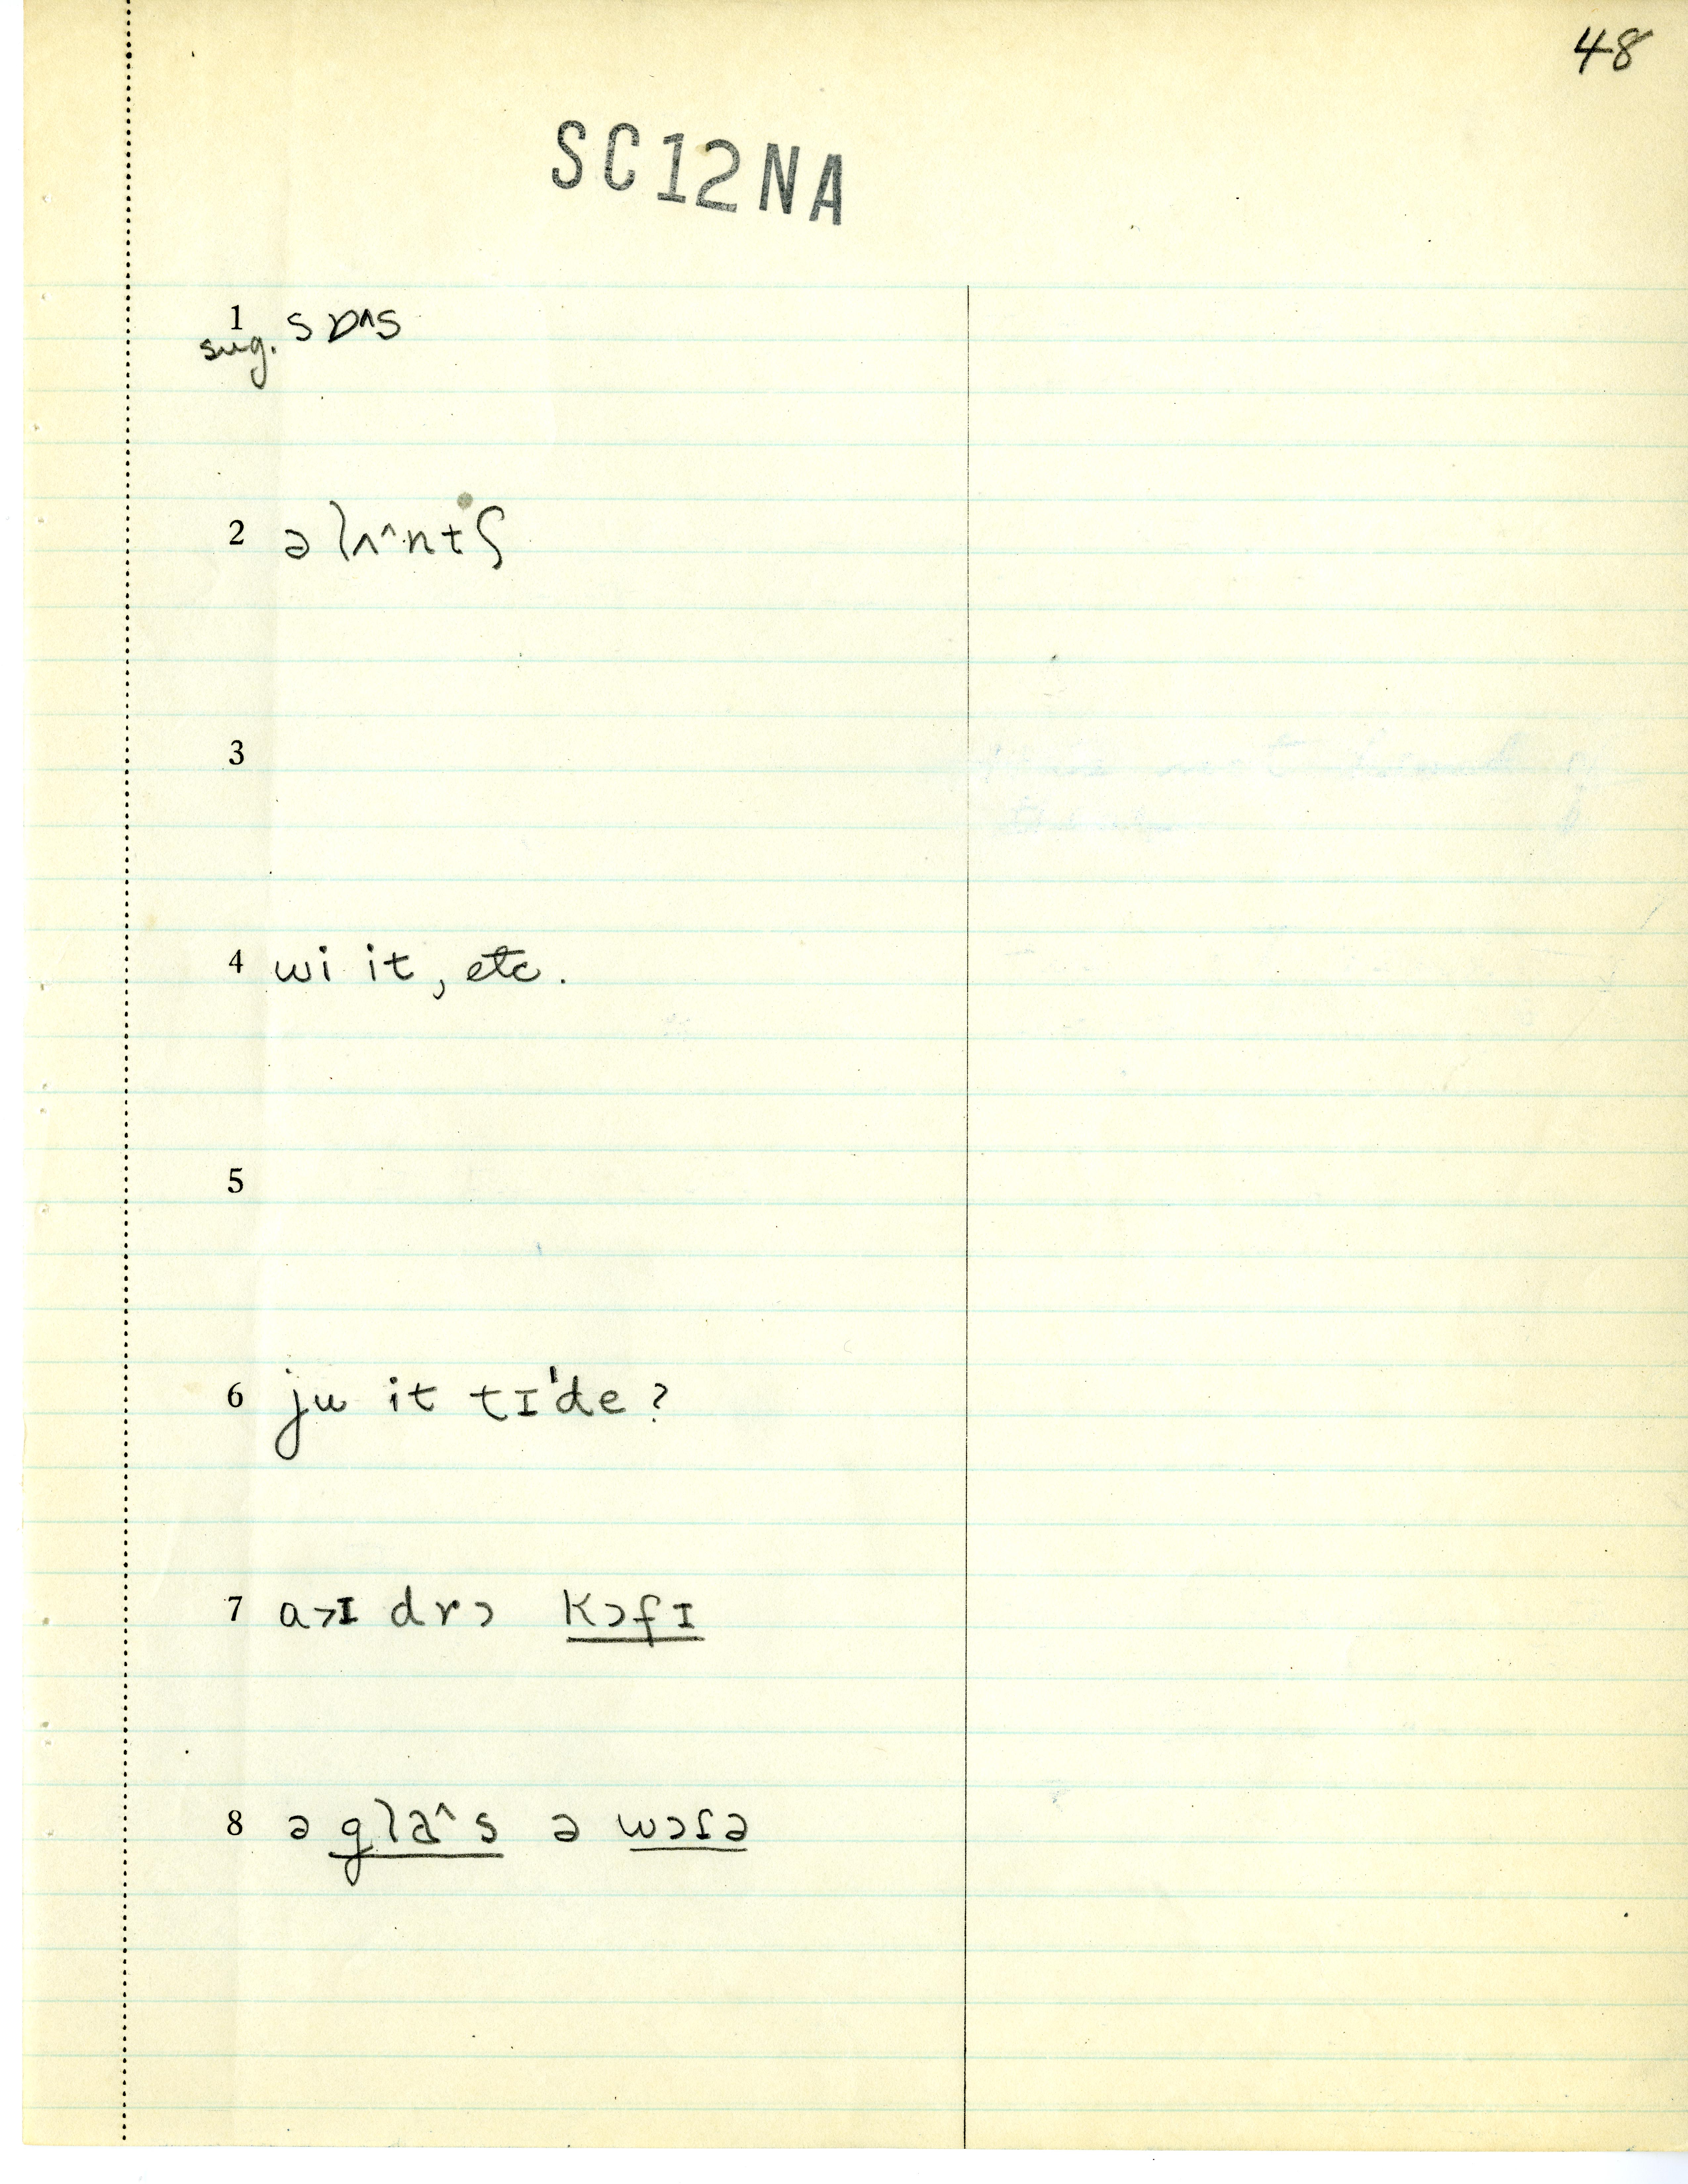 48
SC12NA
1 sɒ^s
sug.
2 ə lʌ^ntʃ
3
4 wi it, etc.
5
6 ju it tɪ'de?
7 a>ɪ drɔ kɔfɪ
8 ə gla^s ə wɔɾə